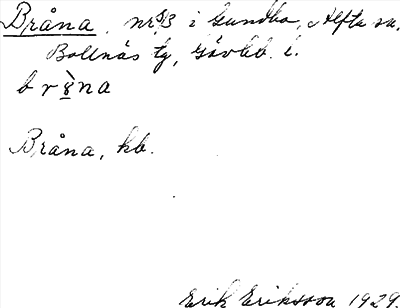 Bråna, nr 8/13 i Gundbo, Alfta sn.
Bollnäs tg, Gävleb. l.
Bråna, kb.
Erik Eriksson 1929.